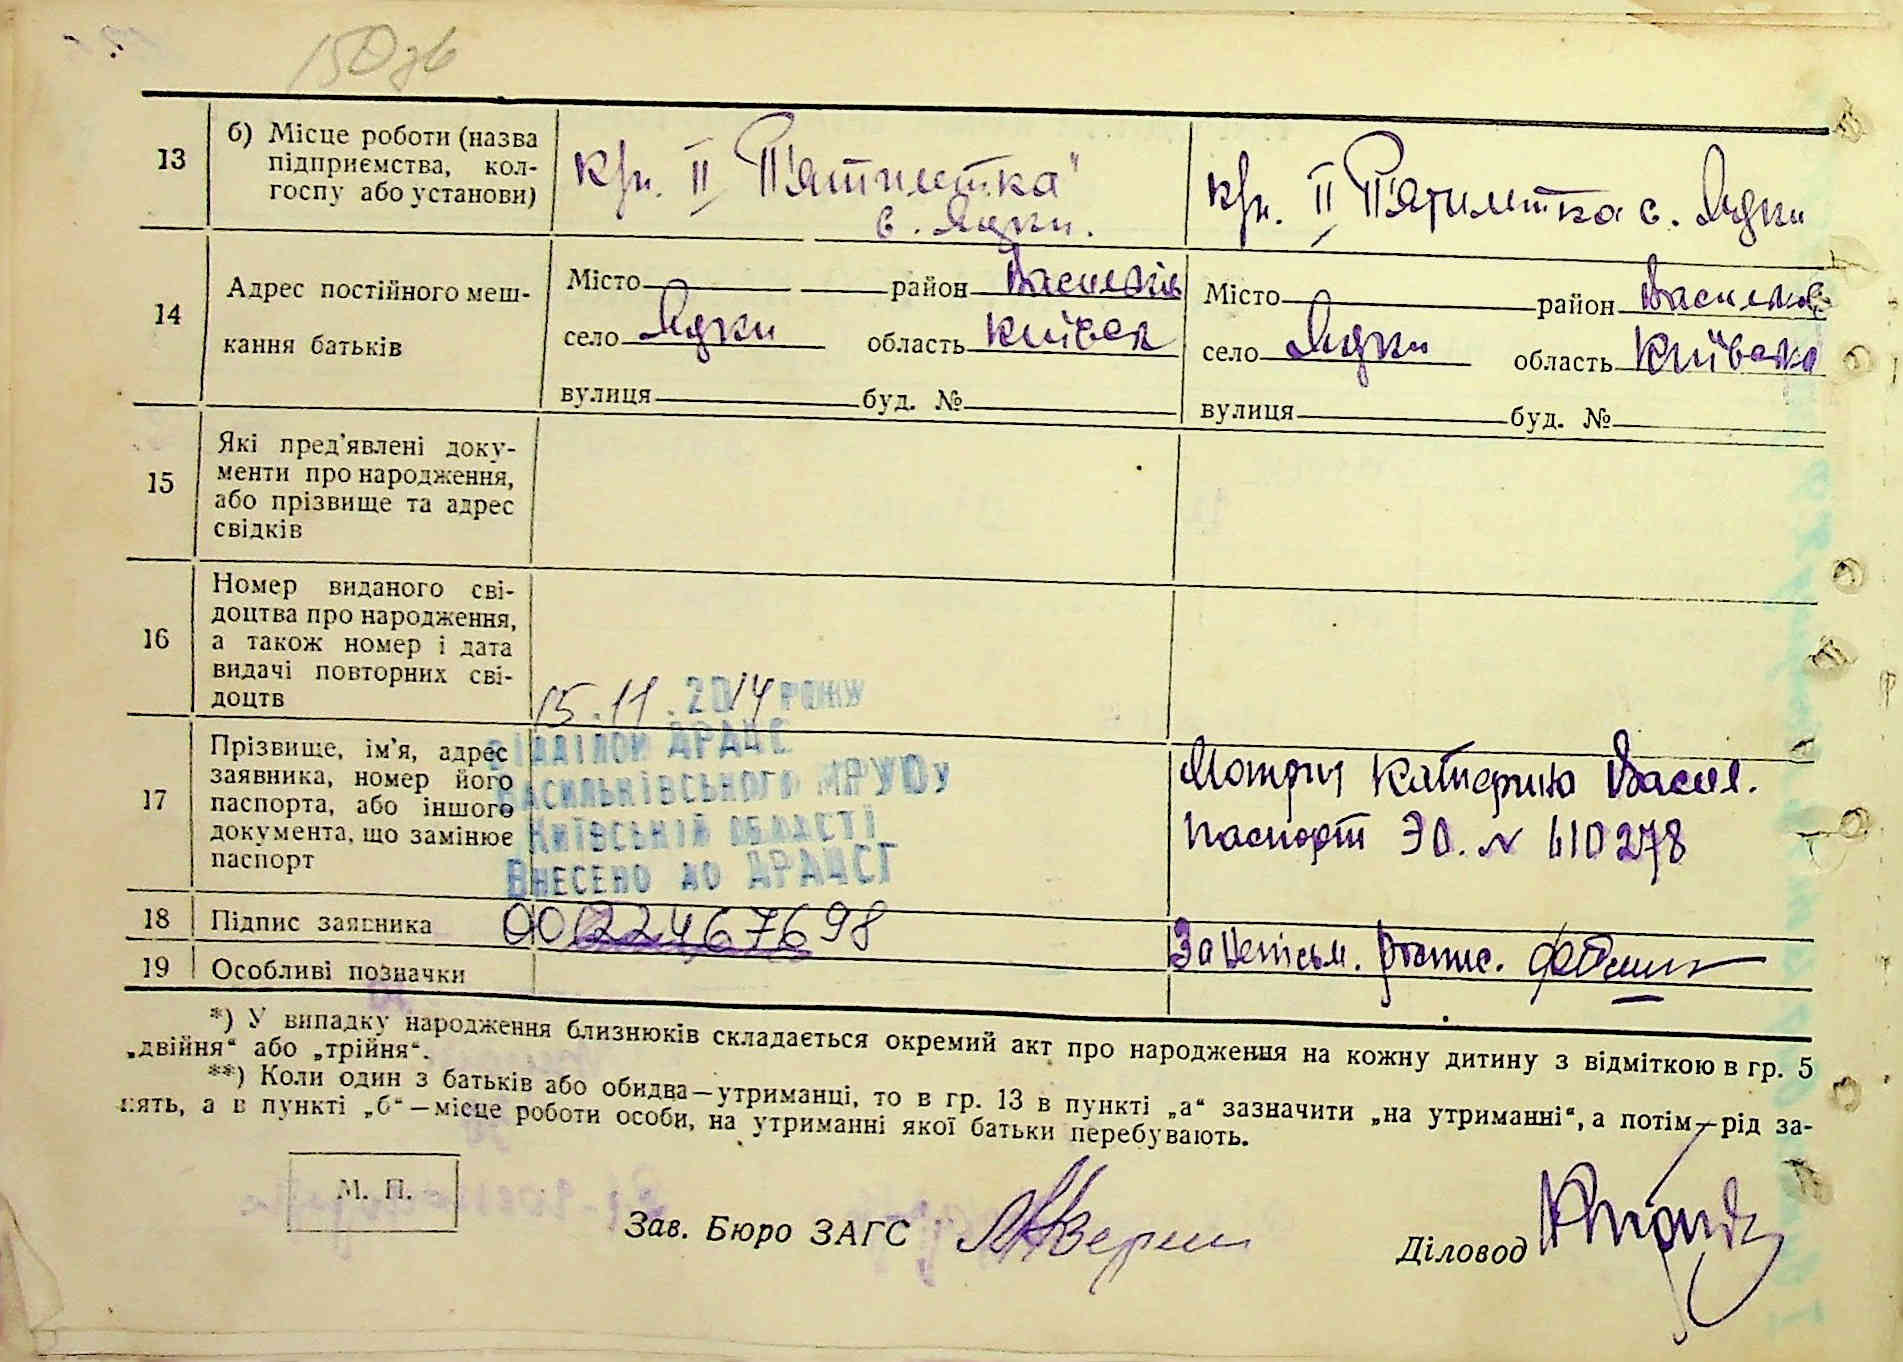 150зв
13
б) Місце роботи (назва
підприємства, кол-
госпу або установи)
II П'ятилетка"
с. Яцки.
II П'ятилетка с. Яцки
14
Адрес постійного меш-
кання батьків
Місто район Василків
село Яцки область Київск
вулиця буд. №
Місто район Василків
село Яцки область Київска
вулиця буд. №
15
Які пред'явлені доку-
менти про народження,
або прізвище та адрес
свідків
16
Номер виданого сві-
доцтва про народження,
а також номер і дата
видачі повторних сві-
доцтв
15.11.2014 РОКУ
ВІДДІЛОМ ДРАЦС
ВАСИЛЬКІВСЬКОГО МРУЮ у
КИЇВСЬКІЙ ОБЛАСТІ
ВНЕСЕНО ДО ДРАЦСГ
00122467698
17
Прізвище, ім'я, адрес
заявника, номер його
паспорта, або іншого
документа, що замінює
паспорт
Мотрич Катерина Васил.
паспорт ЭО. № 610278
18
Підпис заявника
За
19
Особливі позначки
*) У випадку народження близнюків складається окремий акт про народження на кожну дитину з відміткою в гр. 5
„двійня“ або „трійня“.
**) Коли один з батьків або обидва—утриманці, то в гр. 13 в пункті „а“ зазначити „на утриманні“, а потім—рід за-
нять, а в пункті „б“—місце роботи особи, на утриманні якої батьки перебувають.
М. П.
Зав. Бюро ЗАГС
Діловод